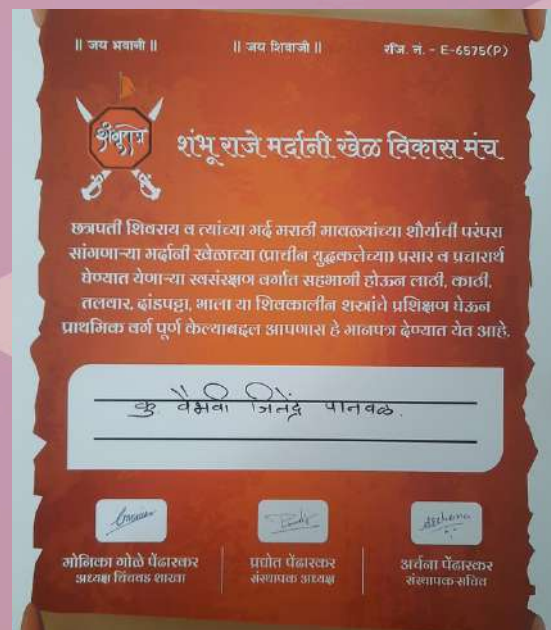 || जय भवानी || || जय शिवाजी || रजि. नं. - E-6575(P)
शंभूराजे
शंभू राजे मर्दानी खेळ विकास मंच
छत्रपती शिवराय व त्यांच्या मर्द मराठी मावळ्यांच्या शौर्याची परंपरा
सांगणाऱ्या मर्दानी खेळाच्या (प्राचीन युद्धकलेच्या) प्रसार व प्रचारार्थ
घेण्यात येणाऱ्या स्वसंरक्षण वर्गात सहभागी होऊन लाठी, काठी,
तलवार, दांडपट्टा, भाला या शिवकालीन शस्त्रांचे प्रशिक्षण घेऊन
प्राथमिक वर्ग पूर्ण केल्याबद्दल आपणास हे मानपत्र देण्यात येत आहे.
कु. वैभवी जितेंद्र पानवळ.
Archana
मोनिका गोळे पेंढारकर प्रद्योत पेंढारकर अर्चना पेंढारकर
अध्यक्ष चिंचवड शाखा संस्थापक अध्यक्ष संस्थापक सचिव